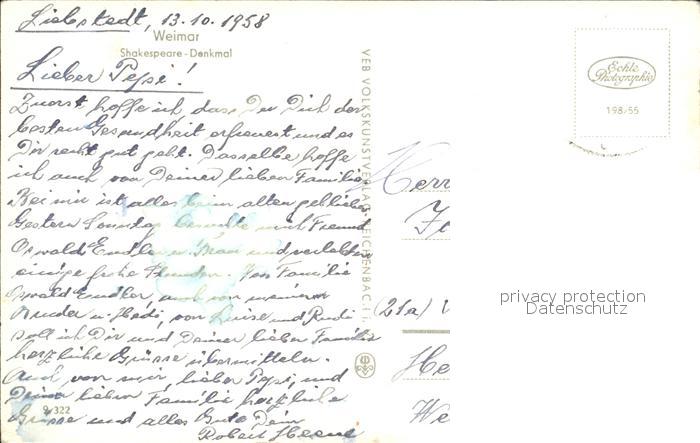 Liebstedt, 13.10.1958
Weimar
Shakespeare-Denkmal
Lieber Pepi!
Zuerst hoffe ich, dass Du Dich der
besten Gesundheit erfreuest und es
Dir recht gut geht. Dasselbe hoffe
ich auch von Deiner lieben Familie.
Bei mir ist alles beim alten geblieben.
Gestern Sonntag besuchte mich Freund
Oswald Endler u. Frau und verlebten
einige frohe Stunden. Von Familie
Oswald Endler, auch von meinem
Bruder u. Hedi, von Luise und Rudi
soll ich Dir und Deiner lieben Familie
herzliche Grüsse übermitteln.
Auch von mir, lieber Pepi, und
Deiner lieben Familie herzliche
Grüsse und alles Gute Dein
Robert
9/322
VEB VOLKSKUNSTVERLAG REICHENBACH i.
Echte
Photographie
198/55
Herr
(21a)
He
We
privacy protection
Datenschutz